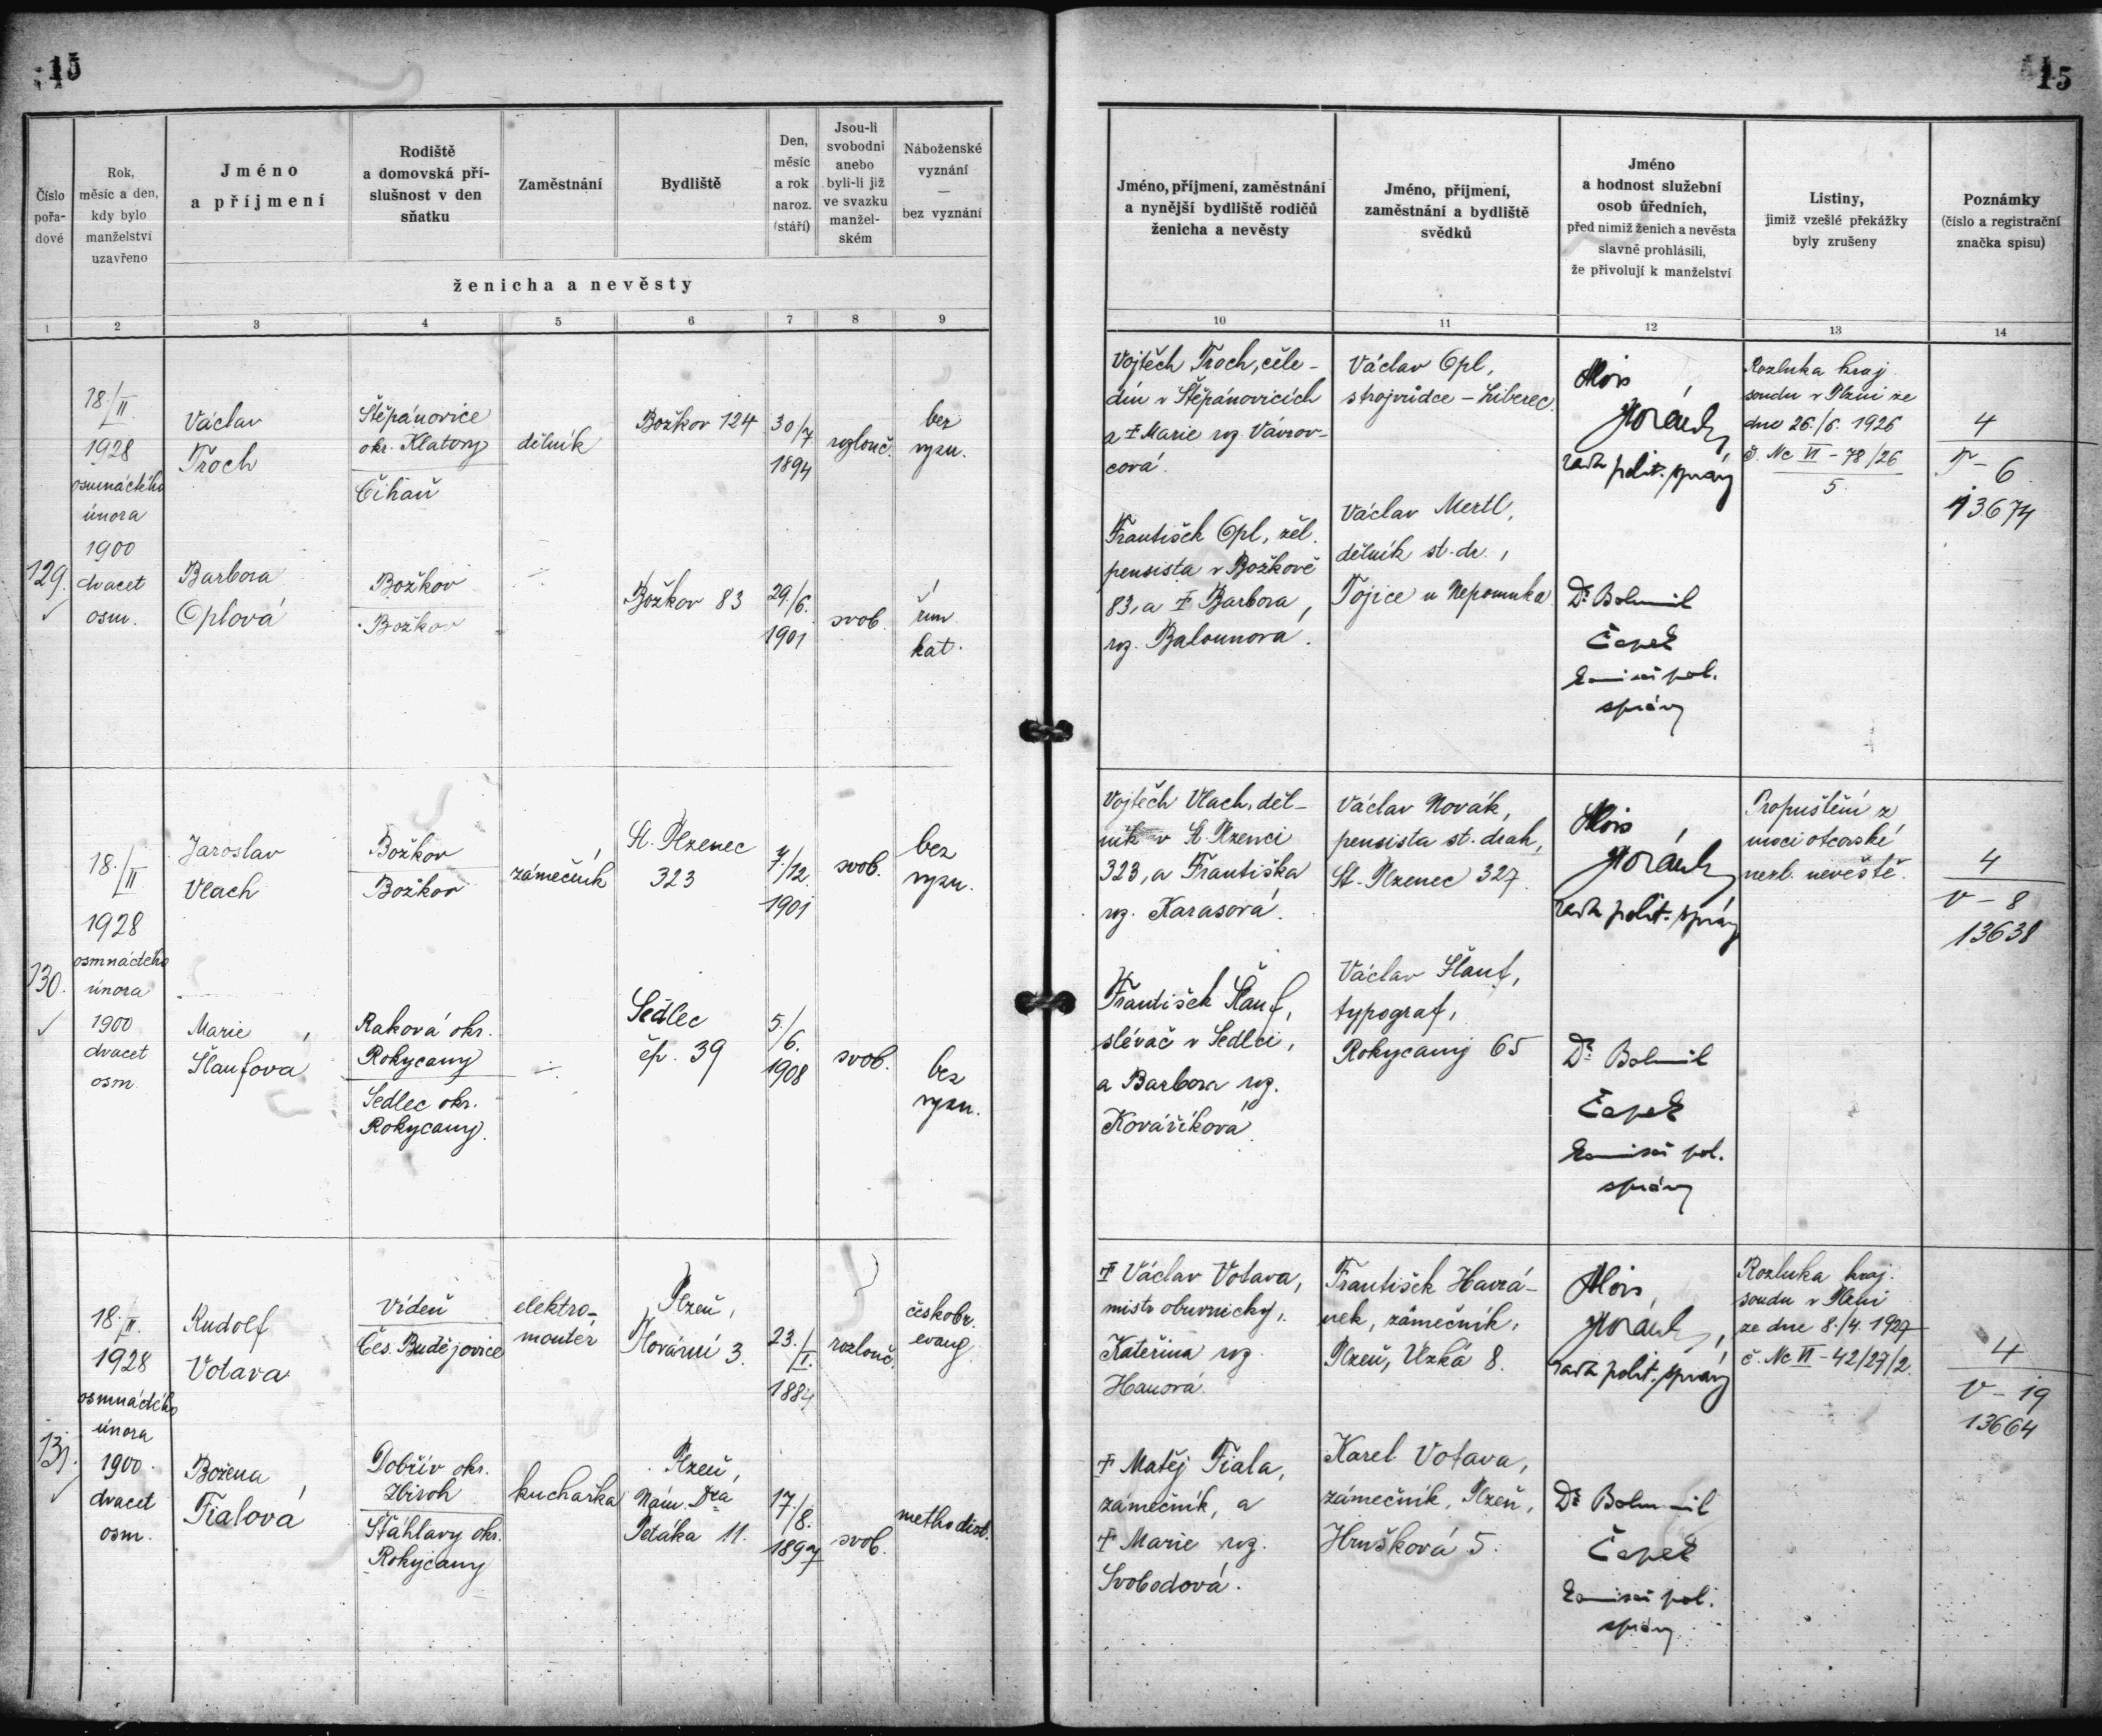 15
15
Číslo
pořa-
dové
Rok,
měsíc a den,
kdy bylo
manželství
uzavřeno
Jméno
a příjmení
Rodiště
a domovská pří-
slušnost v den
sňatku
Zaměstnání
Bydliště
Den,
měsíc
a rok
naroz.
(stáří)
Jsou-li
svobodni
anebo
byli-li již
ve svazku
manžel-
ském
Náboženské
vyznání
—
bez vyznání
ženicha a nevěsty
Jméno, příjmení, zaměstnání
a nynější bydliště rodičů
ženicha a nevěsty
Jméno, příjmení,
zaměstnání a bydliště
svědků
Jméno
a hodnost služební
osob úředních,
před nimiž ženich a nevěsta
slavně prohlásili,
že přivolují k manželství
Listiny,
jimiž vzešlé překážky
byly zrušeny
Poznámky
(číslo a registrační
značka spisu)
1 2 3 4 5 6 7 8 9
10 11 12 13 14
129.
18./II.
1928
osmnáctého
února
1900
dvacet
osm.
Václav
Troch
Štěpánovice
okr. Klatovy
Čihaň
dělník
Božkov 124
30/7.
1894
rozlouč.
bez
vyzn.
Barbora
Oplová
Božkov
Božkov
Božkov 83
29./6.
1901
svob.
řím.
kat.
Vojtěch Troch, čele-
dín v Štěpánovicích
a † Marie roz. Vávrov-
cová.
František Opl, žel.
pensista v Božkově
83, a † Barbora,
roz. Balounová.
Václav Opl,
strojvůdce - Liberec.
Václav Mertl,
dělník st. dr.,
Tojice u Nepomuka
Alois
Horák,
rada polit. správy
Dr. Bohumil
Čapek
komisař pol.
správy
Rozluka kraj.
soudu v Plzni ze
dne 26./6. 1926
č. Nc VI - 78/26
5.
4
T - 6
13674
130.
18./II.
1928
osmnáctého
února
1900
dvacet
osm.
Jaroslav
Vlach
Božkov
Božkov
zámečník
St. Plzenec
323
7./12.
1901
svob.
bez
vyzn.
Marie
Šlaufova
Raková okr.
Rokycany
Sedlec okr.
Rokycany.
Sedlec
čp. 39
5./6.
1908
svob.
bez
vyzn.
Vojtěch Vlach, děl-
ník v St. Plzenci
323, a Františka
roz. Karasová.
František Šlauf,
slévač v Sedlci,
a Barbora roz.
Kováříková.
Václav Novák,
pensista st. drah,
St. Plzenec 327.
Václav Šlauf,
typograf,
Rokycany 65
Alois
Horák,
rada polit. správy
Dr. Bohumil
Čapek
komisař pol.
správy
Propuštění z
moci otcovské
nezl. nevěstě.
4
V - 8
13638
131.
18./II.
1928
osmnáctého
února
1900.
dvacet
osm.
Rudolf
Votava
Vídeň
Čes. Budějovice
elektro-
montér
Plzeň,
Plovární 3.
23./I.
1884
rozlouč.
českobr.
evang.
Božena
Fialová
Dobřív okr.
Zbiroh
Šťáhlavy okr.
Rokycany
kuchařka
Plzeň,
Nám. Dra
Petáka 11.
17./8.
1897
svob.
methodist.
† Václav Votava,
mistr obuvnický,
Kateřina roz.
Hanová.
† Matěj Fiala,
zámečník, a
† Marie roz.
Svobodová.
František Havrá-
nek, zámečník,
Plzeň, Úzká 8.
Karel Votava,
zámečník, Plzeň,
Hrušková 5.
Alois
Horák,
rada polit. správy
Dr. Bohumil
Čapek
komisař pol.
správy
Rozluka kraj.
soudu v Plzni
ze dne 8./4. 1927
č. Nc VI - 42/27/2.
4
V - 19
13664